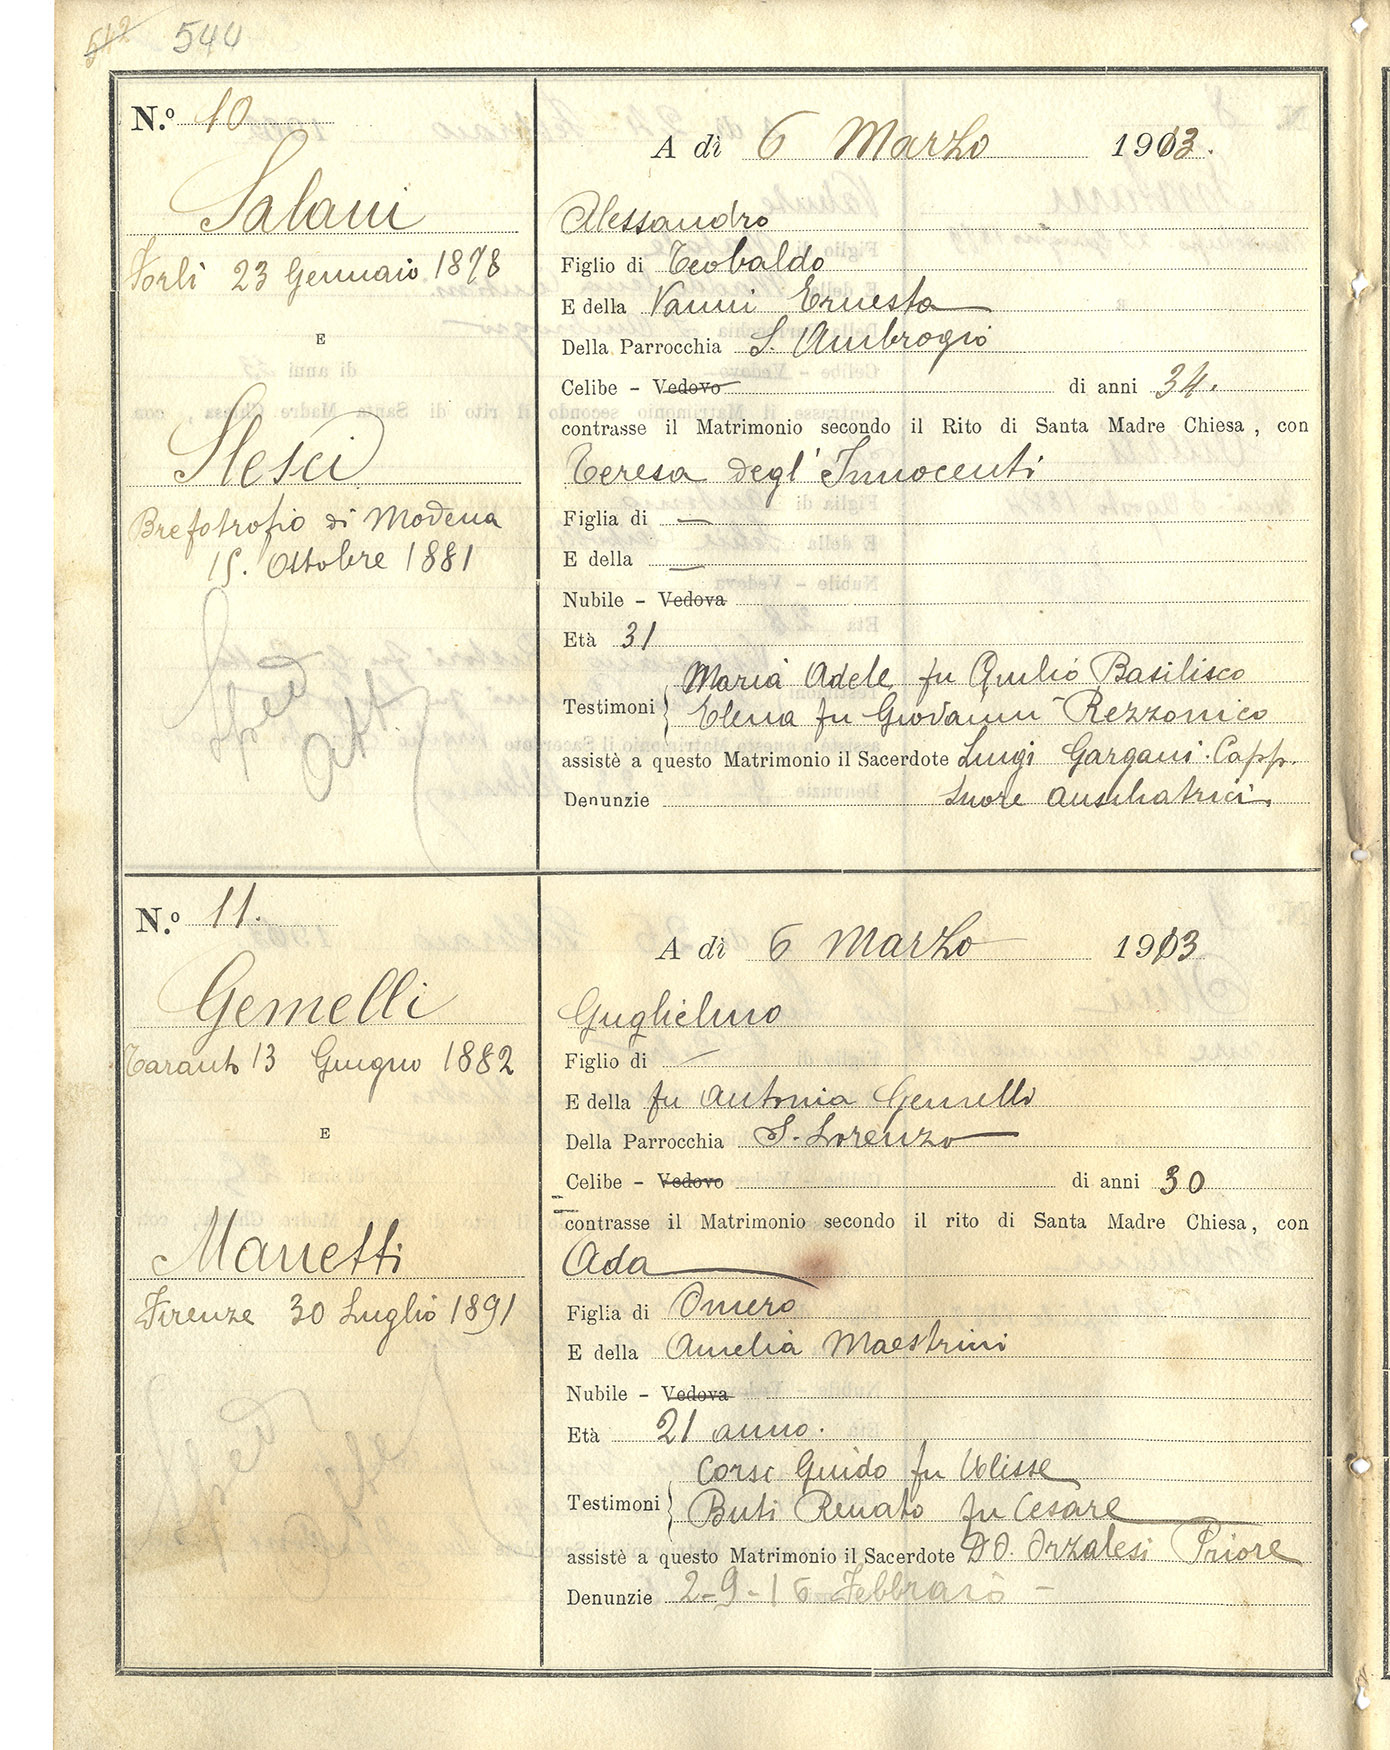 512 544
N.º 10
Salani
Forlì 23 Gennaio 1878
E
Slesci
Brefotrofio di Modena
15. Ottobre 1881
A dì 6 Marzo 1913.
Alessandro
Figlio di Teobaldo
E della Vanni Ernesta
Della Parrocchia S. Ambrogio
Celibe - Vedovo di anni 34.
contrasse il Matrimonio secondo il Rito di Santa Madre Chiesa, con
Teresa degl' Innocenti
Figlia di —
E della —
Nubile - Vedova
Età 31
Maria Adele fu Giulio Basilisco
Testimoni
Elena fu Giovanni Rezzonico
assistè a questo Matrimonio il Sacerdote Luigi Gargani. Capp.
Denunzie Suore Ausiliatrici.
N.º 11.
Gemelli
Taranto 13 Giugno 1882
E
Manetti
Firenze 30 Luglio 1891
A dì 6 Marzo 1913
Guglielmo
Figlio di —
E della fu Antonia Gemelli
Della Parrocchia S. Lorenzo
Celibe - Vedovo di anni 30
contrasse il Matrimonio secondo il rito di Santa Madre Chiesa, con
Ada
Figlia di Omero
E della Amelia Maestrini
Nubile - Vedova
Età 21 anno.
Corsi Guido fu Ulisse
Testimoni
Buti Renato fu Cesare
assistè a questo Matrimonio il Sacerdote D. O. Orzalesi Priore
Denunzie 2-9-16 Febbraio -